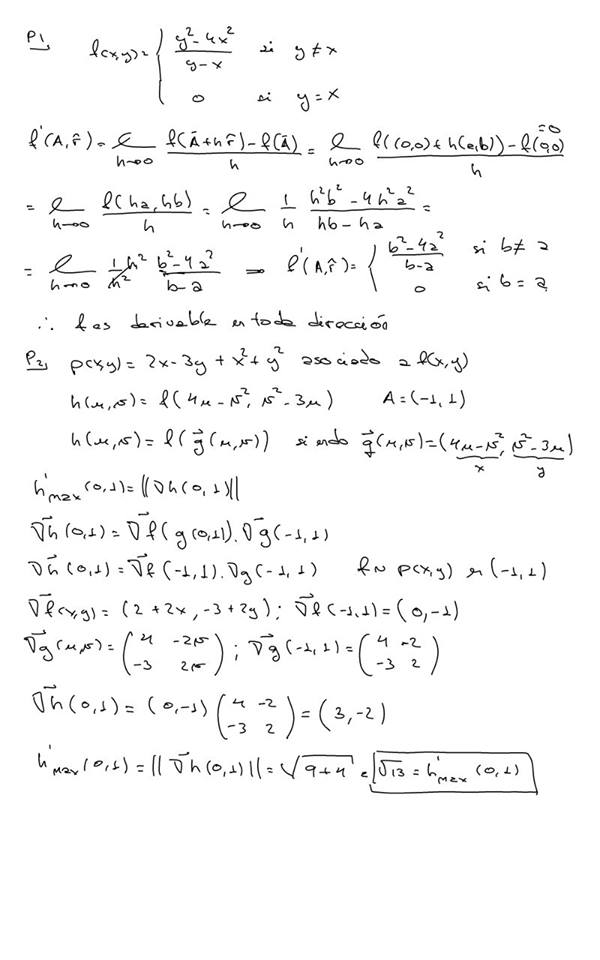 P1)
f(x,y)= { (y²-4x²)/(y-x) si y≠x
0 si y=x
f'(A,r̂)= lim h→0 (f(Ā+hr̂)-f(Ā))/h = lim h→0 (f((0,0)+h(a,b))-f(0,0))/h =0
= lim h→0 f(ha,hb)/h = lim h→0 1/h (h²b²-4h²a²)/(hb-ha) =
= lim h→0 1/h² h² (b²-4a²)/(b-a) ⇒ f'(A,r̂)= { (b²-4a²)/(b-a) si b≠a
0 si b=a
∴ f es derivable en toda dirección
P2) p(x,y)= 2x-3y+x²+y² asociado a f(x,y)
h(u,v)= f(4u-v², v²-3u) A=(-1,1)
h(u,v)= f(g⃗(u,v)) siendo g⃗(u,v)=(4u-v², v²-3u)
x y
h'max(0,1)=||∇h(0,1)||
∇h(0,1)=∇f(g(0,1)).∇g(-1,1)
∇h(0,1)=∇f(-1,1).∇g(-1,1) f~p(x,y) en (-1,1)
∇f(x,y)=(2+2x,-3+2y); ∇f(-1,1)=(0,-1)
∇g(u,v)=(4 -2v; -3 2v); ∇g(-1,1)=(4 -2; -3 2)
∇h(0,1)=(0,-1)(4 -2; -3 2)=(3,-2)
h'max(0,1)=||∇h(0,1)||=√(9+4) = √13=h'max(0,1)